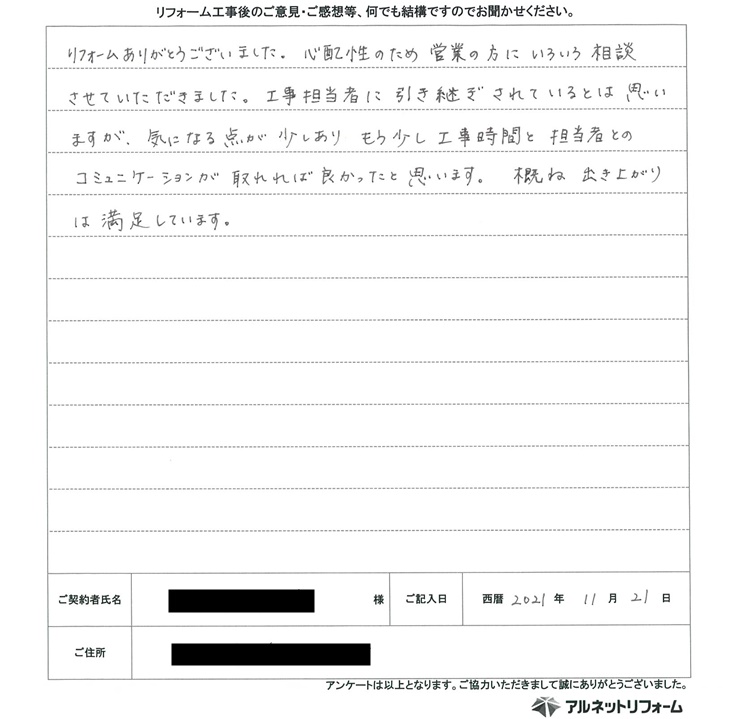 リフォーム工事後のご意見・ご感想等、何でも結構ですのでお聞かせください。
リフォームありがとうございました。心配性のため営業の方にいろいろ相談
させていただきました。工事担当者に引き継ぎされているとは思い
ますが、気になる点が少しあり もう少し工事時間と担当者との
コミュニケーションが取れれば良かったと思います。 概ね出き上がり
は満足しています。
ご契約者氏名 様 ご記入日 西暦 2021 年 11 月 21 日
ご住所
アンケートは以上となります。ご協力いただきまして誠にありがとうございました。
アルネットリフォーム